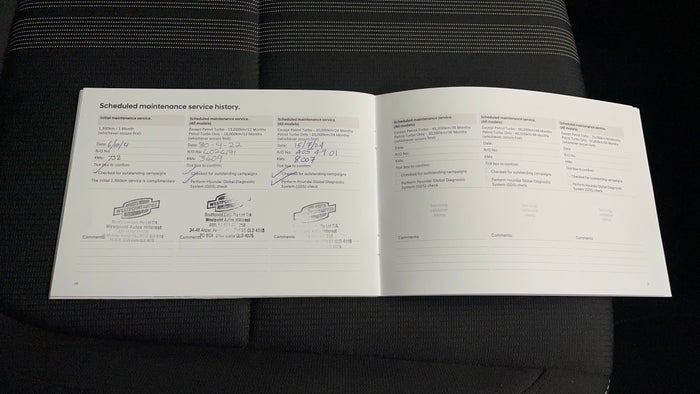 Scheduled maintenance service history.
Initial maintenance service.
1,500km / 1 Month
(whichever occurs first)
Date:
R/O No:
KMs: 732
Tick box to confirm:
Checked for outstanding campaigns
The initial 1,500km service is complimentary
Westpoint Autos Hillcrest
Comments:
Scheduled maintenance service.
(All models)
Except Petrol Turbo - 15,000km/12 Months
Petrol Turbo Only - 10,000km/12 Months
(whichever occurs first)
Date: 30-9-22
R/O No:
KMs: 3609
Tick box to confirm:
Checked for outstanding campaigns
Perform Hyundai Global Diagnostic
System (GDS) check
Westpoint Autos Hillcrest
QLD 4118
PO BOX
QLD 4075
Comments:
Scheduled maintenance service.
(All models)
Except Petrol Turbo - 30,000km/24 Months
Petrol Turbo Only - 20,000km/24 Months
(whichever occurs first)
Date:
R/O No:
KMs: 8007
Tick box to confirm:
Checked for outstanding campaigns
Perform Hyundai Global Diagnostic
System (GDS) check
Westpoint Autos Hillcrest
QLD 4118
Comments:
Scheduled maintenance service.
(All models)
Except Petrol Turbo - 45,000km/36 Months
Petrol Turbo Only - 30,000km/36 Months
(whichever occurs first)
Date:
R/O No:
KMs:
Tick box to confirm:
Checked for outstanding campaigns
Perform Hyundai Global Diagnostic
System (GDS) check
Servicing
retailer
stamp
Comments:
Scheduled maintenance service.
(All models)
Except Petrol Turbo - 60,000km/48 Months
Petrol Turbo Only - 40,000km/48 Months
(whichever occurs first)
Date:
R/O No:
KMs:
Tick box to confirm:
Checked for outstanding campaigns
Perform Hyundai Global Diagnostic
System (GDS) check
Comments:
Scheduled maintenance service.
(All models)
(whichever occurs first)
Date:
R/O No:
KMs:
Tick box to confirm:
Checked for outstanding campaigns
Perform Hyundai Global Diagnostic
System (GDS) check
Comments: